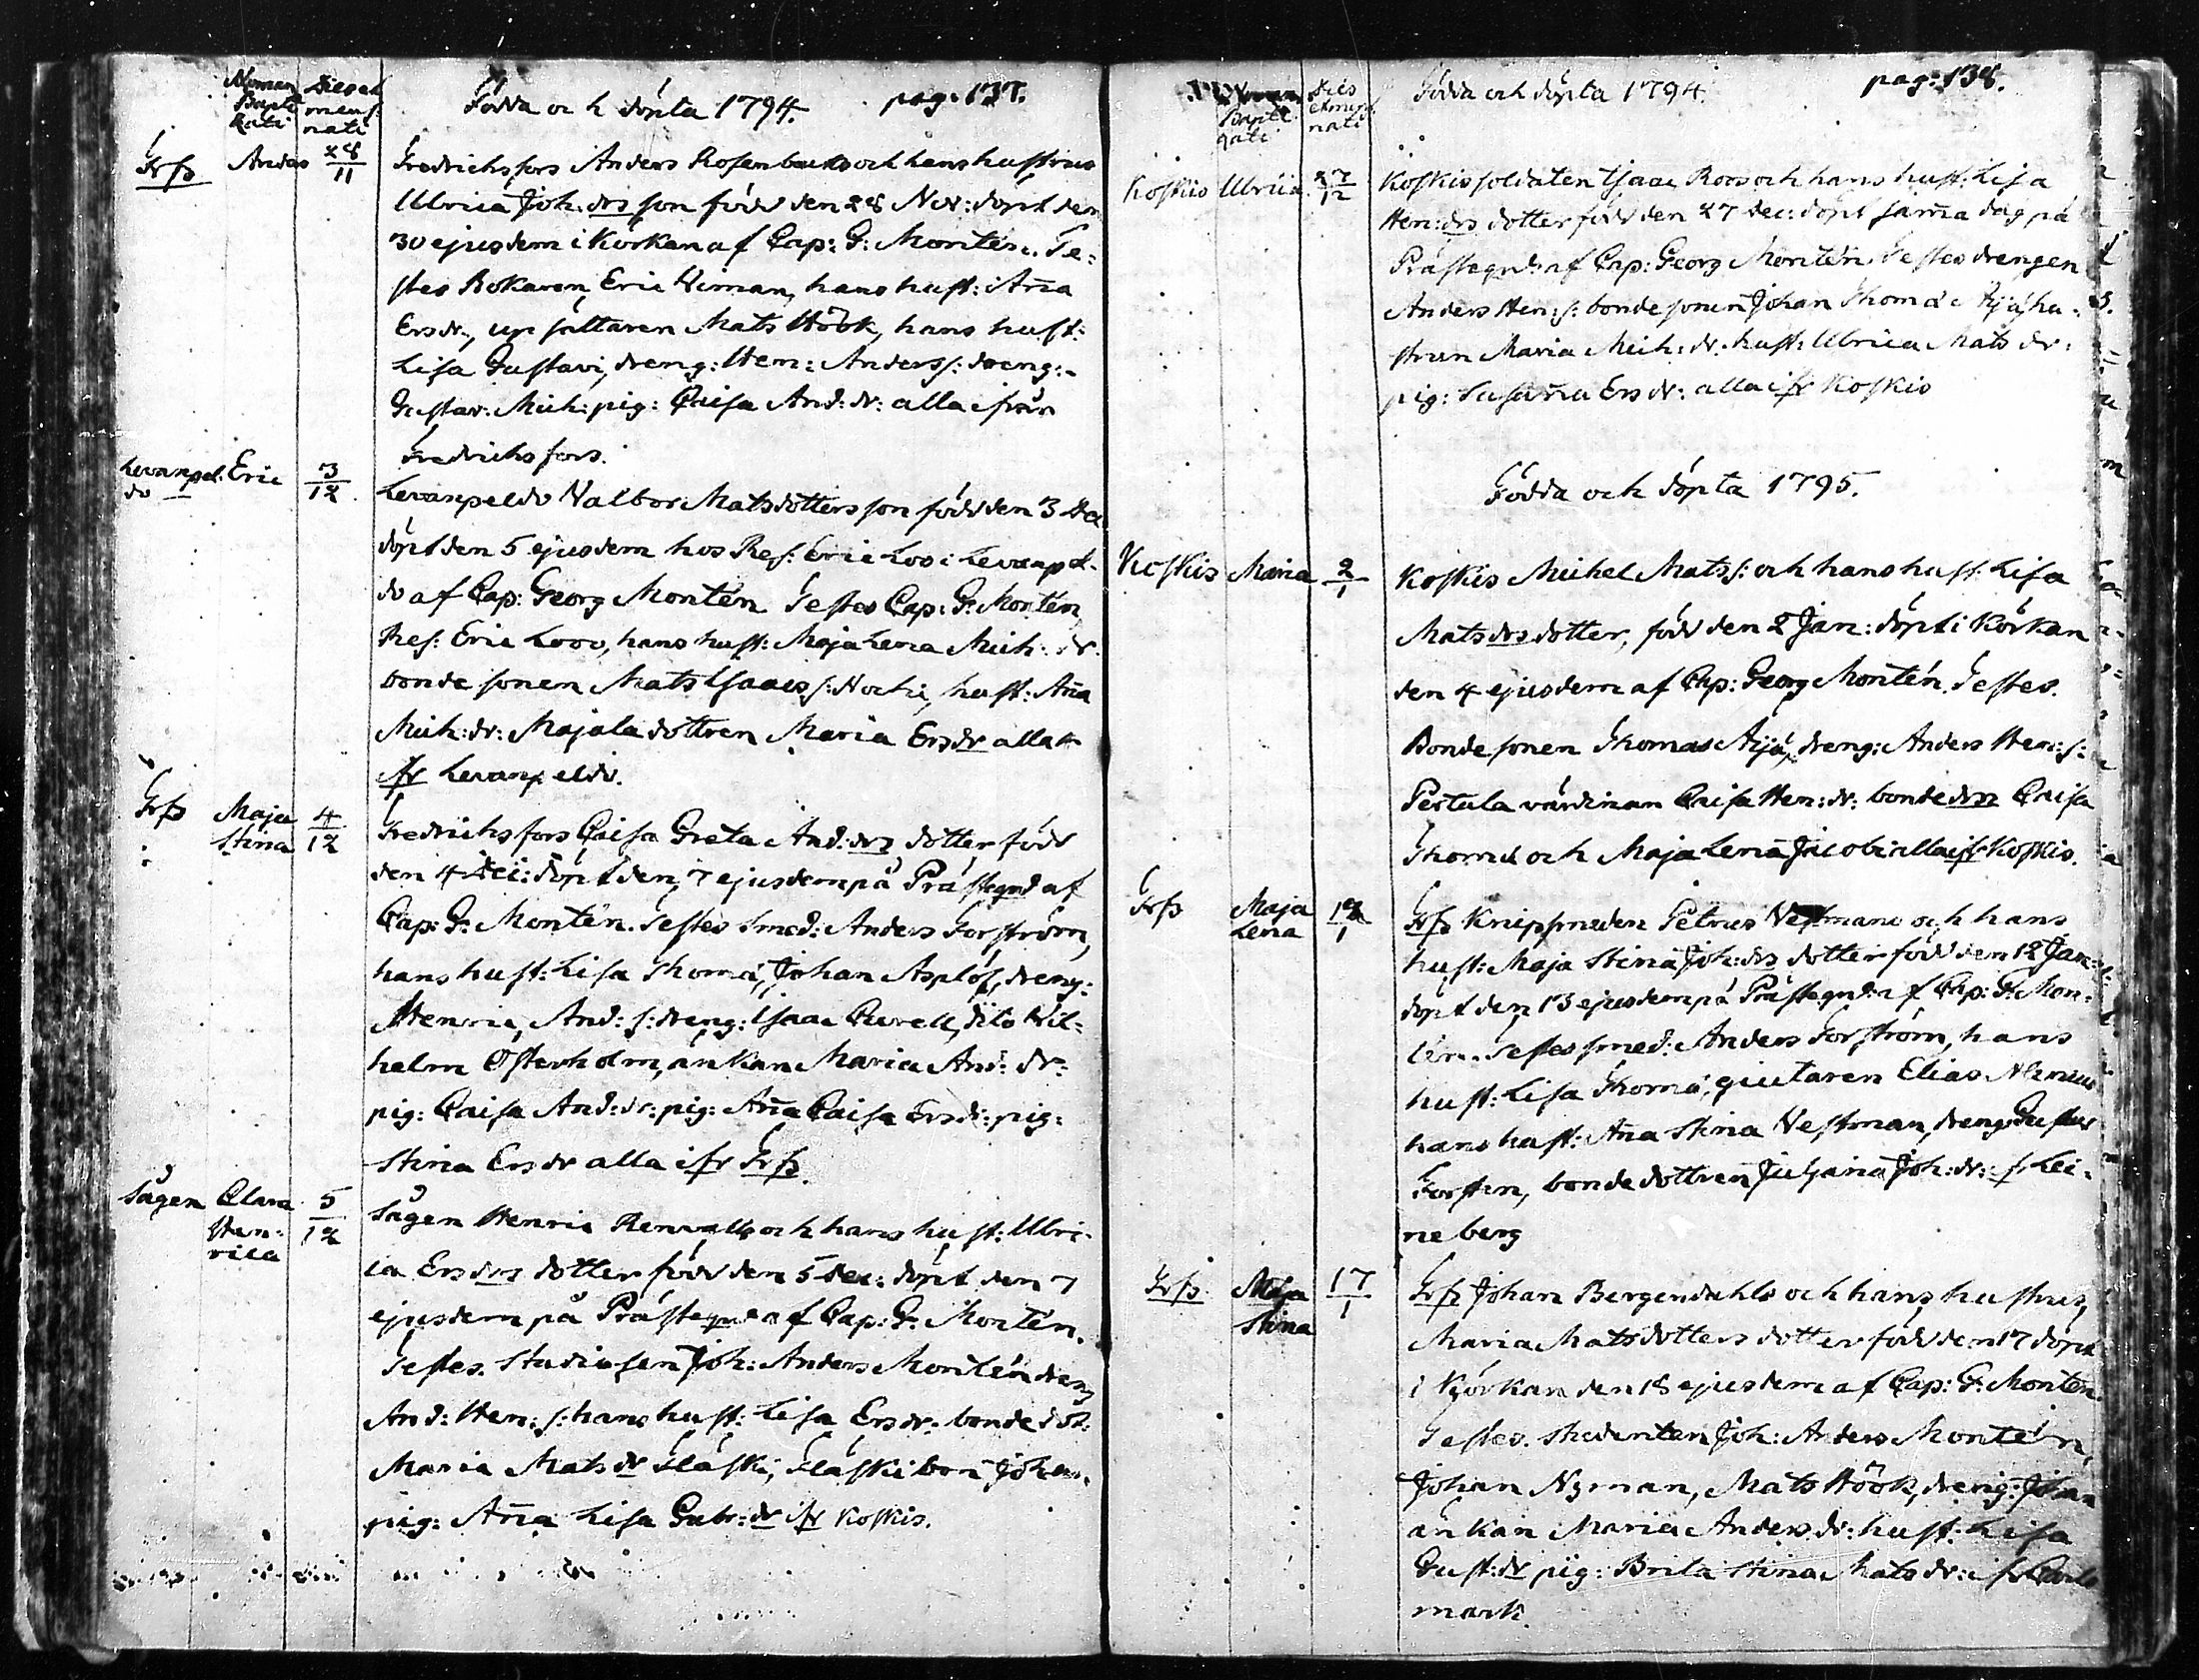 Nomen Baptizati
Dies et mens: nati
Födda och döpta 1794. pag: 137.
Frfs Anders 28/11
Fredrichsfors Anders Rosenbacks och hans hustrus
Ulrica Joh: drs son född den 28 Nov: döpt den
30 ejusdem i Körkan af Cap: G: Montén. Te=
stes Bokaren, Eric Wiman, hans hust: Anna
Ers dr, up sättaren Mats Höök, hans hust:
Lisa Gustavi, dreng: Hen: Anders s: dreng:
Gustav: Mich: pig: Caisa And: dr: alla ifrån
Fredrichsfors.
Levanpel-do Eric 3/12
Levanpeldo Valbor Matsdotters son född den 3 Dec
döpt den 5 ejusdem hos Ref: Eric Loo i Levanpel-
do af Cap: Georg Montén Testes Cap: G: Montén,
Ref: Eric Looo, hans hust: Maja Lena Mich: dr:
bonde sonen Mats Isaacs s: hust: Anna
Mich: dr: Majala dottren Maria Ers dr alla
ifr Levanpeldo.
Frfs Maja Stina 4/12
Fredrichsfors Caisa Greta And: drs dotter född
den 4 Dec: döpt den 7 ejusdem på Prästegrd af
Cap: G: Montén. Testes Smed: Anders Forström,
hans hust: Lisa Thomæ, Johan Asplöf, dreng:
Henric, And: s: dreng: Isaac Curell, dito Wil=
helm Österholm, änkan Maria And: dr:
pig: Caisa And: dr: pig: Anna Caisa Ers dr: pig:
Stina Ers dr alla ifr Frfs.
Sågen Clara Hen=rica 5/12
Sågen Henric Renvalls och hans hust: Ulri-
ca Ers drs dotter född den 5 Dec: döpt den 7
ejusdem på Prästegrd af Cap: G: Montén.
Testes. Studiosen Joh: Anders Montén dreng
And: Hen: s: hans hust: Lisa Ers dr: bonde dot:
Maria Mats dr Fläski, Fläski bon Johan.
pig: Anna Lisa Gabr: dr ifr Koskis.
Nomen Baptizati
Dies et mens: nati
Födda och döpta 1794. pag: 138.
Koskis Ulrica 27/12
Koskis soldaten Isaac Roos och hans hust: Lisa
Hen: drs dotter född den 27 dec: döpt samma dag på
Prästegrd: af Cap: Georg Montén. Testes drengen
Anders Hen: s: bonde sonen Johan Thomæ Äijä, hu=
strun Maria Mich: dr: hust: Ulrica Mats dr:
pig: Susanna Ers dr: alla ifr Koskis
Födda och döpta 1795.
Koskis Maria 2/1
Koskis Michel Mats s: och hans hust: Lisa
Mats drs dotter, född den 2 Jan: döpt i Körkan
den 4 ejusdem af Cap: Georg Montén. Testes.
Bonde sonen Thomas Äijä, dreng: Anders Hen: s:
Pertula värdinan Caisa Hen: dr: bonde drn Caisa
Thomæ och Maja Lena Jacobi alla ifr Koskis.
Frfs Maja Lena 12/1
Frfs Knipsmeden Petrus Vestmans och hans
hust: Maja Stina Joh: drs dotter född den 12 Jan:
döpt den 13 ejusdem på Prästegrd: af Cap: G: Mon=
tén. Testes smed: Anders Forström, hans
hust: Lisa Thomæ, giutaren Elias
hans hust: Anna Stina Vestman, dreng: Gustav
Forstén, bonde dottren Juliana Joh: dr: Lei=
neberg
Frfs. Maja Stina 17/1
Frfs Johan Bergendahls och hans hustrus
Maria Matsdotters dotter född den 17 döpt
i Kjörkan den 18 ejusdem af Cap: G: Montén.
Testes. Studenten Joh: Anders Montén,
Johan Nyman, Mats Höök, dreng: Johan
änkan Maria Anders dr: hust: Lisa
Gust: dr pig: Brita Stina Mats dr: ifr
mark